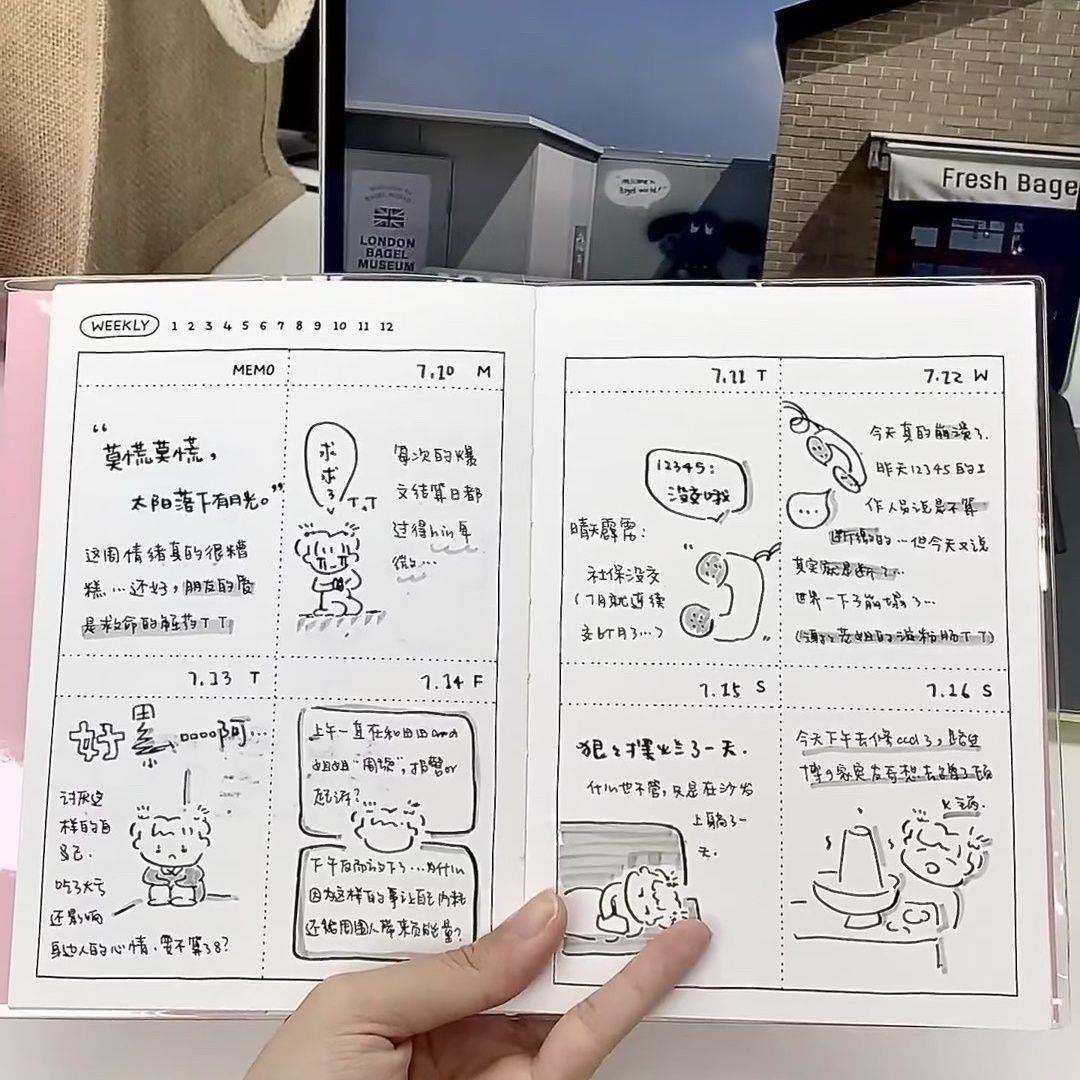 Welcome to
BAGEL WORLD
LONDON
BAGEL
MUSEUM
"Welcome to
Bagel world!"
Fresh Bage
WEEKLY 1 2 3 4 5 6 7 8 9 10 11 12
MEMO
"莫慌莫慌，
太阳落下有月光。"
这周情绪真的很糟
糕...还好，朋友的爱
是救命的解药TT
7.10 M
求
求
了
T.T
每次的爆
文结算日都
过得hin卑
微...
7.11 T
12345：
没交哦
晴天霹雳：
社保没交
(7月就连续
交6个月了...)
7.12 W
...
今天真的崩溃了.
昨天12345的工
作人员说是不算
断缴的...但今天又说
其实就是断了...
世界一下子崩塌了...
7.13 T
好累....啊...
讨厌这
样的自
己.
吃了大亏
还影响
身边人的心情.要不算了8?
7.14 F
上午一直在和田田and
姐姐"周旋"，报警or
起诉?...
下午反而
因为这样的事让自己内耗
还给周围人带来负能量?
7.15 S
狠狠摆烂了一天.
什么也不管，只是在沙发
上躺了一
天.
7.16 S
今天下午去修ccd了，路过
博多家突发奇想去撮了顿
火锅.